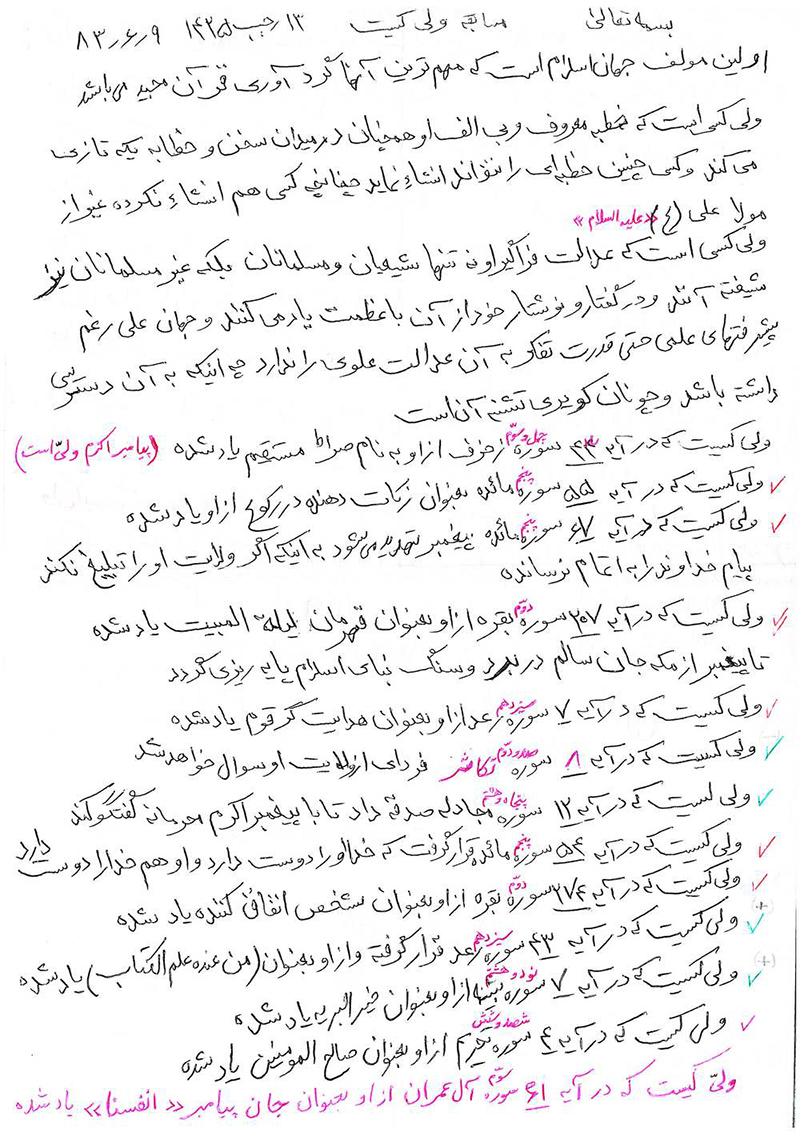 بسمه تعالی مسابقه ولی کیست ۱۳ رجب ۱۴۲۵ ۸۳٫۶٫۹
اولین مولف جهان اسلام است که مهم ترین آنها گردآوری قرآن مجید می باشد
ولی کسی است که خطبه معروف و بی الف او همچنان در میدان سخن و خطابه یکه تازی
می کند و کسی چنین خطبه ای را نتواند انشاء نماید چنانچه کسی هم انشاء نکرده غیر از
مولا علی (ع) «علیه السلام»
ولی کسی است که عدالت فراگیر او نه تنها شیعیان و مسلمانان بلکه غیر مسلمانان نیز
شیفته آنند و در گفتار و نوشتار خود از آن با عظمت یاد می کنند و جهان علی رغم
پیشرفتهای علمی حتی قدرت تفکر به آن عدالت علوی را ندارد چه اینکه به آن دسترسی
داشته باشد و چونان کویری تشنه آن است
ولی کیست که در آیه ۴۳ سوره چهل و سوّم زخرف از او به نام صراط مستقیم یاد شده (پیامبر اکرم ولیّ است)
ولی کیست که در آیه ۵۵ سوره پنجم مائده بعنوان زکات دهنده در رکوع از او یاد شده
ولی کیست که در آیه ۶۷ سوره پنجم مائده پیغمبر تهدید می شود به اینکه اگر ولایت او را تبلیغ نکند
پیام خداوند را به اتمام نرسانده
ولی کیست که در آیه ۲۰۷ سوره دوّم بقره از او بعنوان قهرمان لیلة المبیت یاد شده
تا پیغمبر از مکه جان سالم در ببرد و سنگ بنای اسلام پایه ریزی گردد
ولی کیست که در آیه ۷ سوره سیزدهم رعد از او بعنوان هدایت گر قوم یاد شده
ولی کیست که در آیه ۸ سوره صد و دوّم تکاثر فردای از ولایت او سوال خواهد شد
ولی کیست که در آیه ۱۲ سوره پنجاه و هشتم مجادله صدقه داد تا با پیغمبر اکرم محرمانه گفتگو کند
ولی کیست که در آیه ۵۴ سوره پنجم مائده قرار گرفت که خدا او را دوست دارد و او هم خدا را دوست دارد
ولی کیست که در آیه ۲۷۴ سوره دوّم بقره از او بعنوان شخص انفاق کننده یاد شده
ولی کیست که در آیه ۴۳ سوره سیزدهم رعد قرار گرفته و از او بعنوان (من عنده علم الکتاب) یاد شده
ولی کیست که در آیه ۷ سوره نود و هشتم بینه از او بعنوان خیر البریه یاد شده
ولی کیست که در آیه ۴ سوره شصت و شش تحریم از او بعنوان صالح المومنین یاد شده
ولیّ کیست که در آیه ۶۱ سوره سوّم آل عمران از او بعنوان جان پیامبر «انفسنا» یاد شده